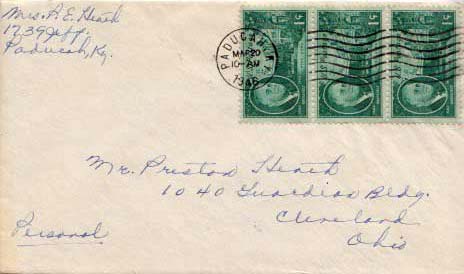 Mrs. A. E. Heath
1739 Jeff,
Paducah, Ky.
PADUCAH, KY.
MAR 20
10 - AM
1946
1¢ 1¢ 1¢
Mr. Preston Heath
1040 Guardian Bldg.
Cleveland
Ohio
Personal